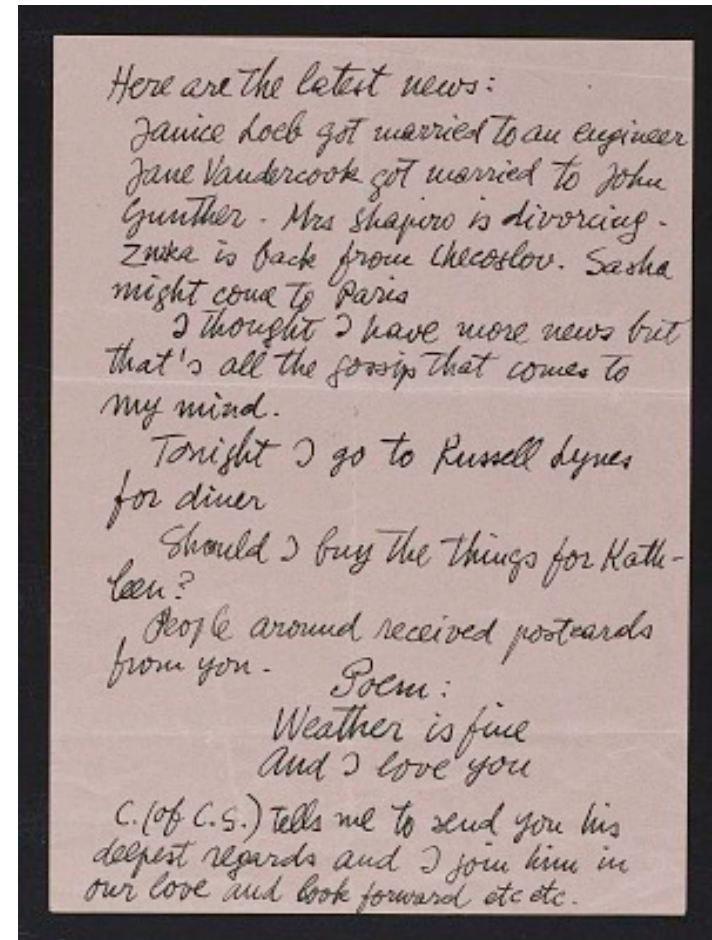 Here are the latest news:
Janice Loeb got married to an engineer
Jane Vandercook got married to John
Gunther - Mrs Shapiro is divorcing -
is back from Checoslov. Sasha
might come to Paris
I thought I have more news but
that's all the gossip that comes to
my mind.
Tonight I go to Russell Lynes
for diner
Should I buy the things for Kath-
leen?
People around received postcards
from you -
Poem:
Weather is fine
And I love you
C. (of C.S.) tells me to send you his
deepest regards and I join him in
our love and look forward etc etc.